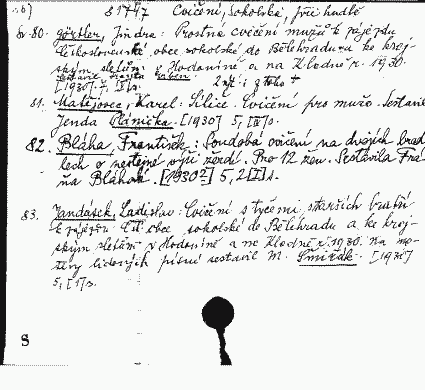 § 1747 Cvičení, Sokolská, při hudbě
80. Görtler, Jindra: Prostná cvičení mužů k zájezdu
československé obce sokolské do Bělehradu a ke kraj-
ským sletům v Hodoníně a na Kladně r. 1930.
[1930]
81. Matějovec, Karel: Silice. Cvičení pro muže. Sestavil
Jenda Plánička. [1930] 5, [II] s.
82. Bláha, František: Soudobá cvičení na dvojích brad-
lech o nestejné výši žerdí. Pro 12 žen. Sestavila Frá-
ňa Bláhová. [1930?] 5, 2 [I] s.
83. Jandásek, Ladislav: Cvičení s tyčemi starších bratří
k zájezdu Čsl. obce sokolské do Bělehradu a ke kraj-
ským sletům v Hodoníně a na Kladně r. 1930. Na mo-
tivy lidových písní sestavil M. Smižák. [1930]
5, [I] s.
8